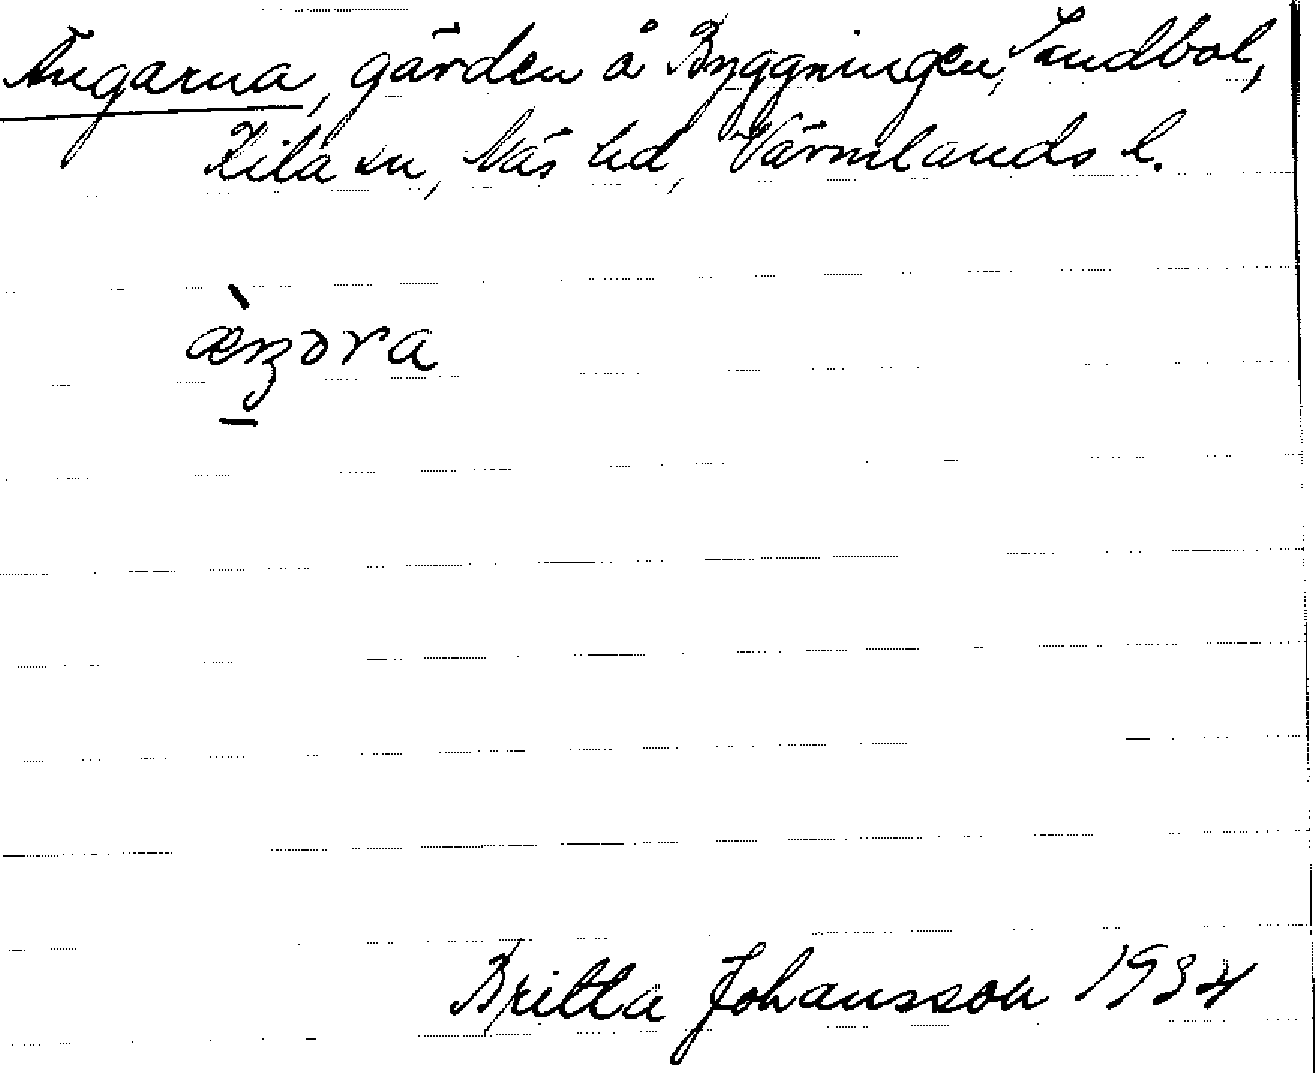 Ängarna, gärden å Byggningen, Sandbol,
Kila sn, Näs hd, Värmlands l.
æŋəra
Britta Johansson 1934